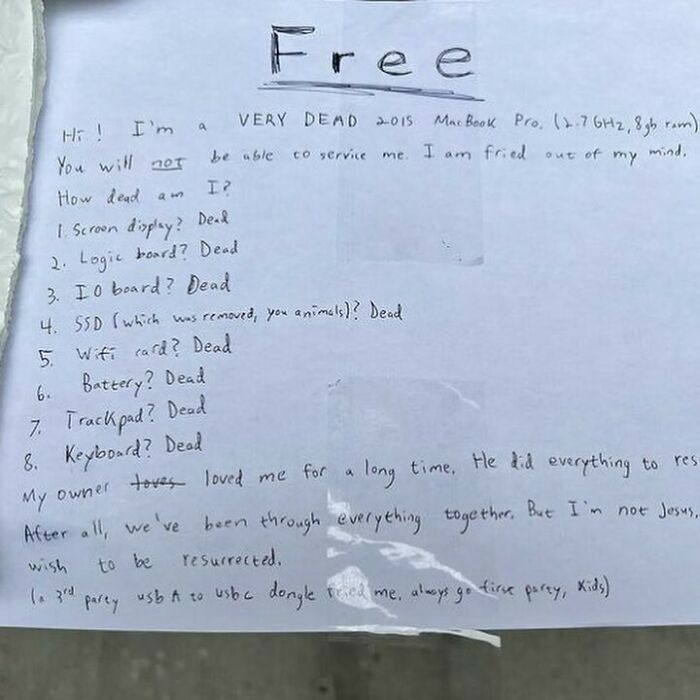 Free
Hi! I'm a VERY DEAD 2015 MacBook Pro. (2.7 GHz, 8gb ram)
You will not be able to service me. I am fried out of my mind.
How dead am I?
1. Screen display? Dead
2. Logic board? Dead
3. IO board? Dead
4. SSD (which was removed, you animals)? Dead
5. Wifi card? Dead
6. Battery? Dead
7. Trackpad? Dead
8. Keyboard? Dead
My owner loves loved me for a long time. He did everything to res
After all, we've been through everything together. But I'm not Jesus,
wish to be resurrected.
(a 3rd party usb A to usb c dongle fried me. always go first party, kids)